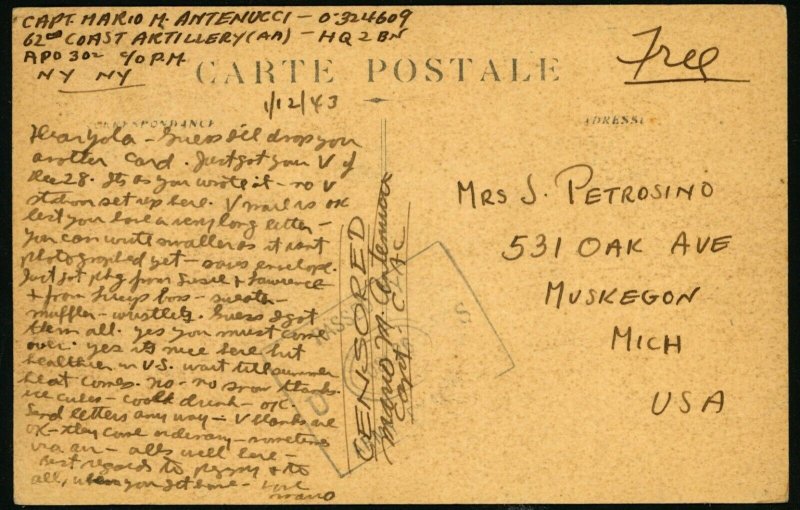 CAPT. MARIO M. ANTENUCCI - O-324609
62nd COAST ARTILLERY (AA) - HQ 2 BN
APO 302 c/o P.M.
NY NY
Free
CARTE POSTALE
1/12/43
CORRESPONDANCE
ADRESSE
Dear Yola - Guess I'll drop you
another card. Just got your V of
Dec 28. It's as you wrote it - no V
station set up here. V mail is ok
lest you have a very long letter -
you can write smaller as it isn't
photographed yet - saves envelope.
Just got pkg from Susie & Lawrence
& from boss - sweater -
muffler - wristlets. Guess I got
them all. Yes you must come
over. Yes it's nice here but
healthier in U.S. wait till summer
heat comes. No - no snow thanks.
ice cubes - cool drink - OK.
Send letters any way - V blanks are
OK - they come ordinary - sometimes
via air - all's well here -
Best regards to Peppy & to
all, when you get home - Love
Mario
CENSORED
Mario M. Antenucci
Capt. CAC
MRS J. PETROSINO
531 OAK AVE
MUSKEGON
MICH
USA